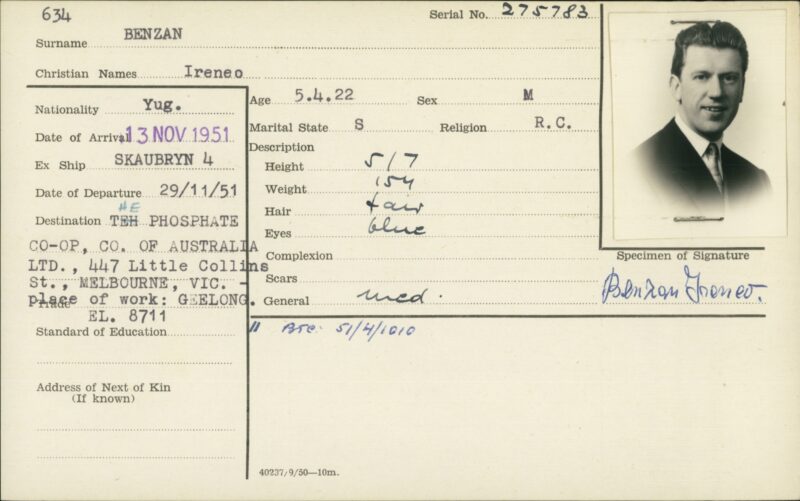 634
Serial No. 275783
Surname BENZAN
Christian Names Ireneo
Nationality Yug.
Date of Arrival 13 NOV 1951
Ex Ship SKAUBRYN 4
Date of Departure 29/11/51
HE
Destination TEH PHOSPHATE
CO-OP, CO. OF AUSTRALIA
LTD., 447 Little Collins
St., MELBOURNE, VIC. -
place of work: GEELONG.
Trade
EL. 8711
Standard of Education
Address of Next of Kin
(If known)
Age 5.4.22 Sex M
Marital State S Religion R.C.
Description
Height 5/7
Weight 154
Hair fair
Eyes blue
Complexion
Scars
General med.
Specimen of Signature
Benzan Ireneo.
51/4/1010
40237/9/50—10m.